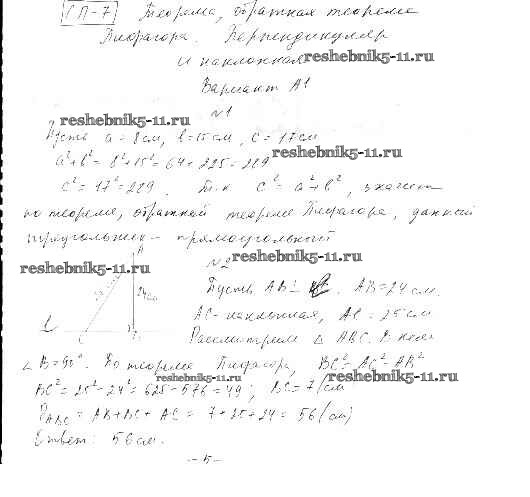 СП-7 Теорема, обратная теореме
Пифагора. Перпендикуляр
и наклонная reshebnik5-11.ru
Вариант А1
reshebnik5-11.ru №1
Пусть a = 8 см, b = 15 см, c = 17 см
a² + b² = 8² + 15² = 64 + 225 = 289 reshebnik5-11.ru
c² = 17² = 289. Т.к. c² = a² + b², значит
по теореме, обратной теореме Пифагора, данный
треугольник - прямоугольный
reshebnik5-11.ru №2 reshebnik5-11.ru
Пусть AB ⊥ . AB = 24 см.
24 см
AC - наклонная, AC = 25 см
C
Рассмотрим △ ABC. В нем
∠ B = 90°. По теореме Пифагора, BC² = AC² - AB²
reshebnik5-11.ru reshebnik5-11.ru
BC² = 25² - 24² = 625 - 576 = 49; BC = 7 (см)
P ABC = AB + BC + AC = 7 + 25 + 24 = 56 (см)
Ответ: 56 см.
- 5 -